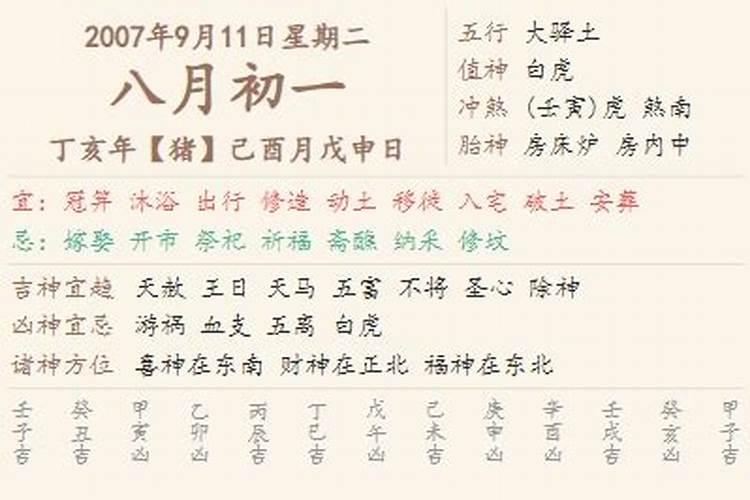 2007年9月11日星期二
八月初一
丁亥年【猪】己酉月戊申日
五行 大驿土
值神 白虎
冲煞 (壬寅)虎 煞南
胎神 房床炉 房内中
宜: 冠笄 沐浴 出行 修造 动土 移徙 入宅 破土 安葬
忌: 嫁娶 开市 祭祀 祈福 斋醮 纳采 修坟
吉神宜趋 天赦 王日 天马 五富 不将 圣心 除神
凶神宜忌 游祸 血支 五离 白虎
诸神方位 喜神在东南 财神在正北 福神在东北
壬子吉 癸丑吉 甲寅凶 乙卯凶 丙辰吉 丁巳吉 戊午凶 己未吉 庚申凶 辛酉凶 壬戌吉 癸亥凶 甲子吉